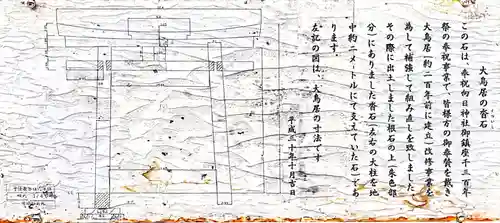 大鳥居の沓石
この石は、奉祝向日神社御鎮座千三百年
祭の奉祝事業で、皆様方の御奉賛を戴き
大鳥居(約二百年前に建立)改修事業を
為して補強して組み直しを致しました
その際に出土しました根石の上(朱色個
分)にありました沓石(左右の大柱を地
中約二メートルにて支えていた石)であ
ります。
左記の図は、大鳥居の寸法です
平成 十年十月吉日